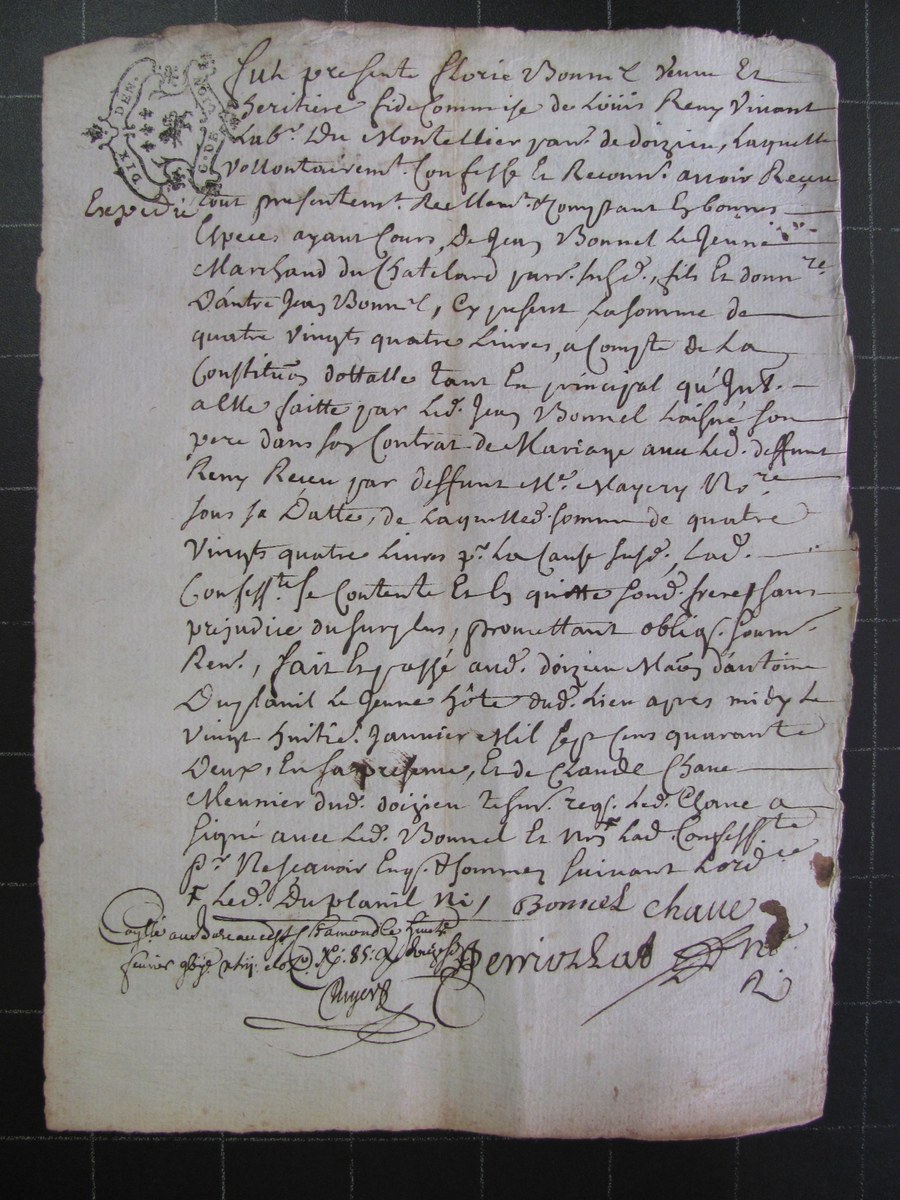 DIX DEN. G. DE
Fut presente florie Bonnel veuve Et
heritiere fideCommise de Loüis Remy vivant
Lab.r Du Montellier par. de doizieu, Laquelle
vollontairemt. Confesse Et Reconn. avoir Reçeu
Expedié tout presentemt. Reellemt. & Comptant En bonnes
Especes ayant Cours, De Jean Bonnel Le Jeune
Marchand du Chatelard par. susd., fils Et donn.re
D'autre Jean Bonnel, Cy present La somme de
quatre vingts quatre Livres, a Compte de La
Constituõn dottalle tant En principal qu'
a Elle faitte par Led. Jean Bonnel L'aisné son
pere dans son Contrat de Mariage avec Led. deffunt
Remy Reçeu par deffunt Me. Mayery No.re
sous sa Datte, de Laquelled. somme de quatre
Vingts quatre Livres pr. La Cause susd., Lad.
Confess.te se Contente Et En quitte sond. frere sans
prejudice du surplus, promettant oblig. soum.
Ren., fait Et passé aud. doizieu Maõn d'antoine
Duplanil Le Jeune hôte dud. Lieu apres midy Le
vingt huitie. Janvier Mil sept Cens quarante
Deux, En sa presence, Et de Claude Chave
Meunier dud. doizieu tesm. req. Led. Chave a
signé avec Led. Bonnel Et non Lad. Confess.te
pr. Ne sçavoir Enq. & sommez suivant L'ord.ce
Led. Duplanil Ni, Bonnel Chave
au Bureau de St. Chamond Le huit
fevrier
No.re
R.